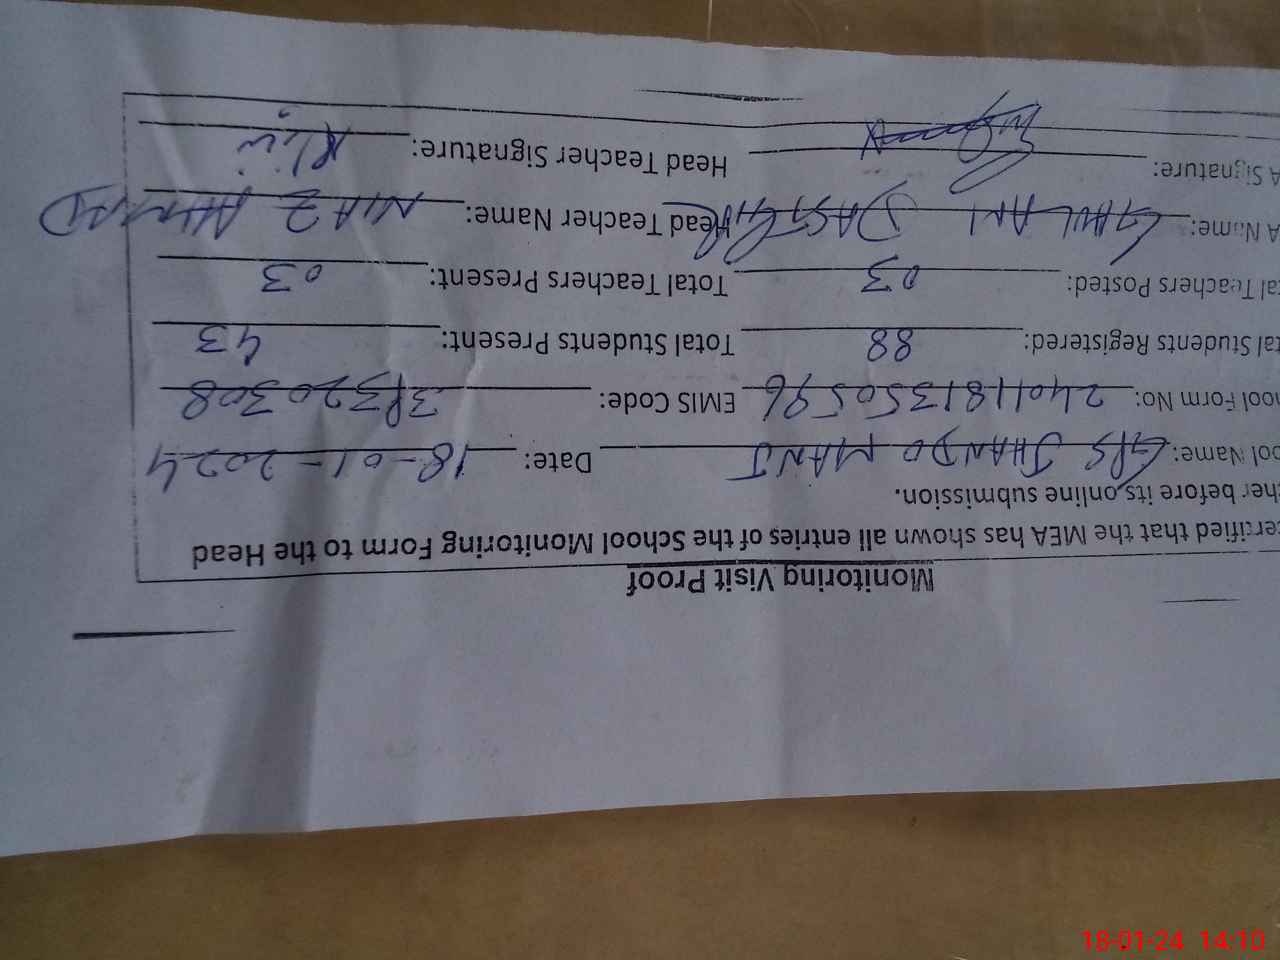 Monitoring Visit Proof
ertified that the MEA has shown all entries of the School Monitoring Form to the Head
her before its online submission.
ool Name: GPS JHANDO MANJ Date: 18-01-2024
ool Form No: 24011813505 96 EMIS Code: 38320308
tal Students Registered: 88 Total Students Present: 43
tal Teachers Posted: 03 Total Teachers Present: 03
A Name: GHULAM DASTGIR Head Teacher Name: NIAZ AHMAD
A Signature: Head Teacher Signature:
18-01-24 14:10